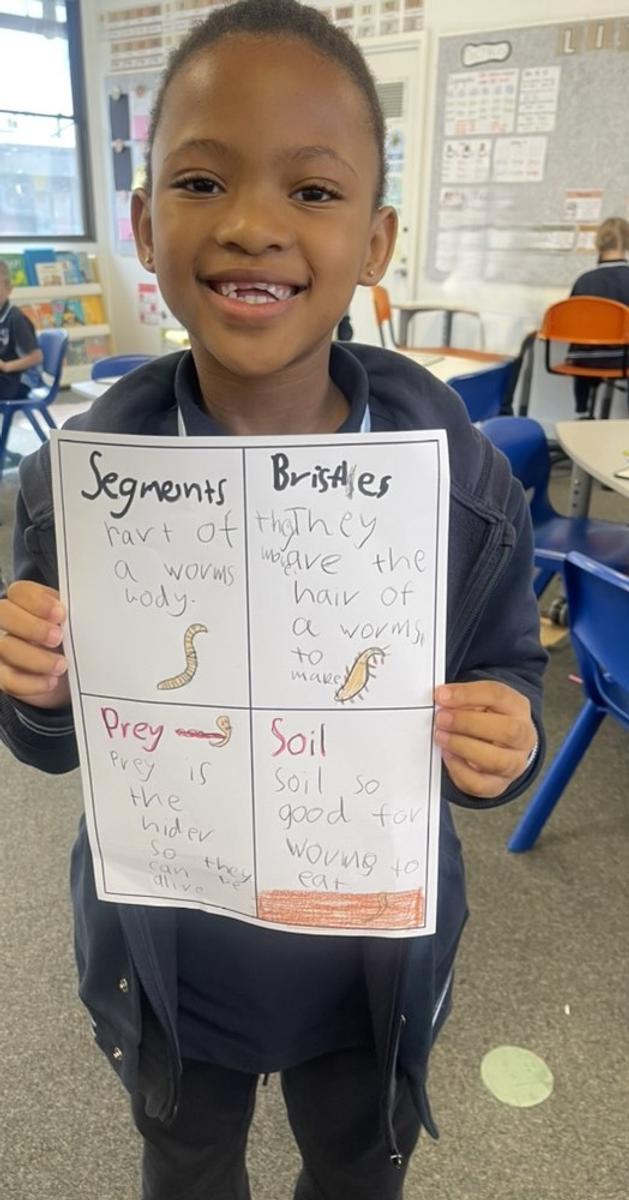 Segments
Part of
a worms
body.
Bristles
They
are the
hair of
a worms,
to
make
Prey
Prey is
the
hider
so they
can be
alive
Soil
Soil so
good for
worms to
eat